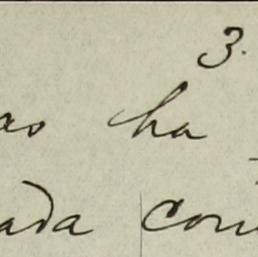 3.
as ha
ada con